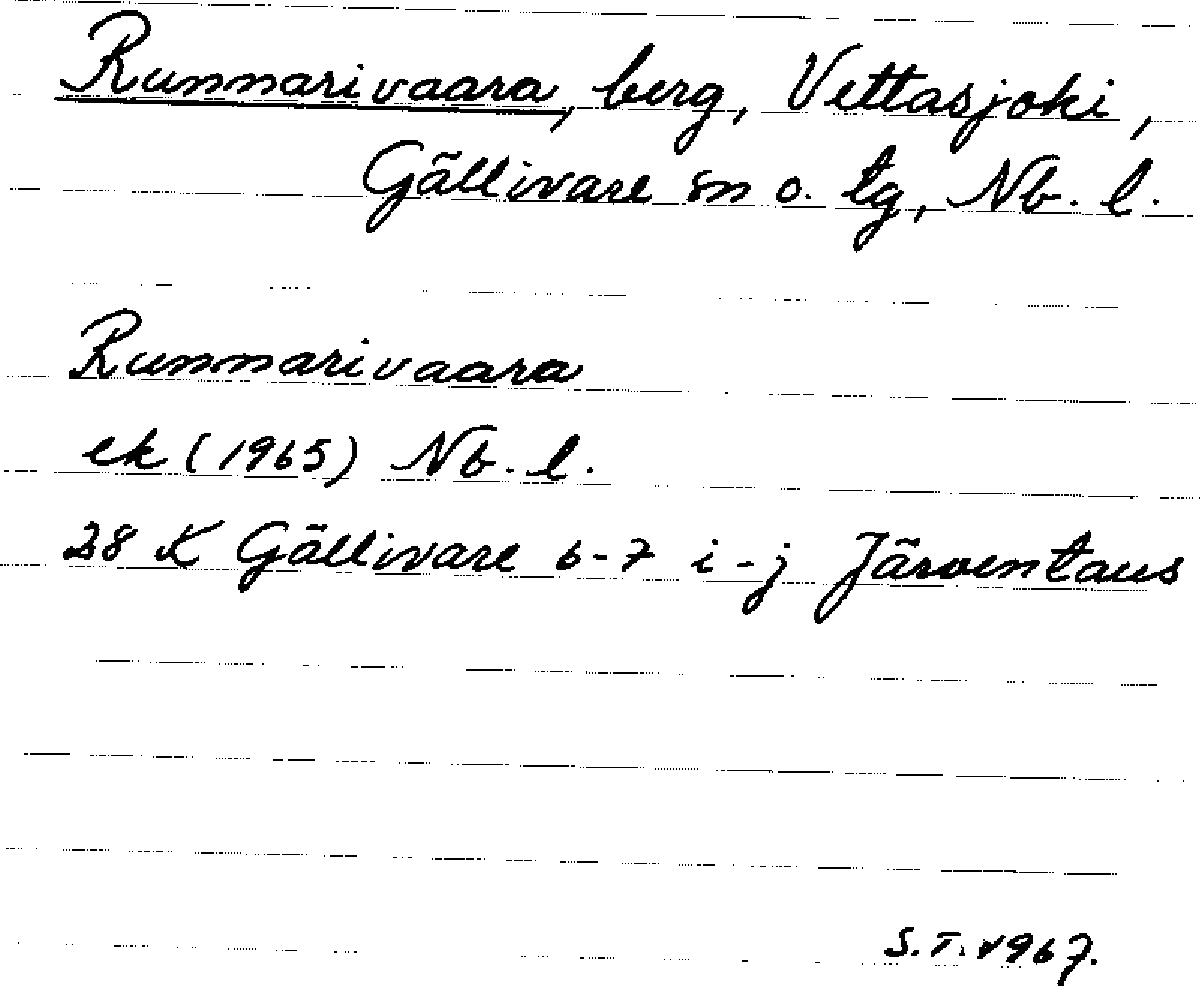 Runnarivaara, berg, Vettasjoki,
Gällivare sn o. tg, Nb. l.
Runnarivaara
ek (1965) Nb. l.
28 K Gällivare 6-7 i-j Järventaus
S.T. 1967.